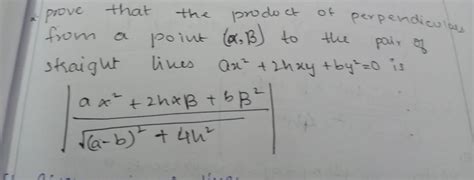 prove that the product of perpendiculars
from a point (α, β) to the pair of
straight lines ax² + 2hxy + by² = 0 is
| aα² + 2hαβ + bβ² / √(a-b)² + 4h² |